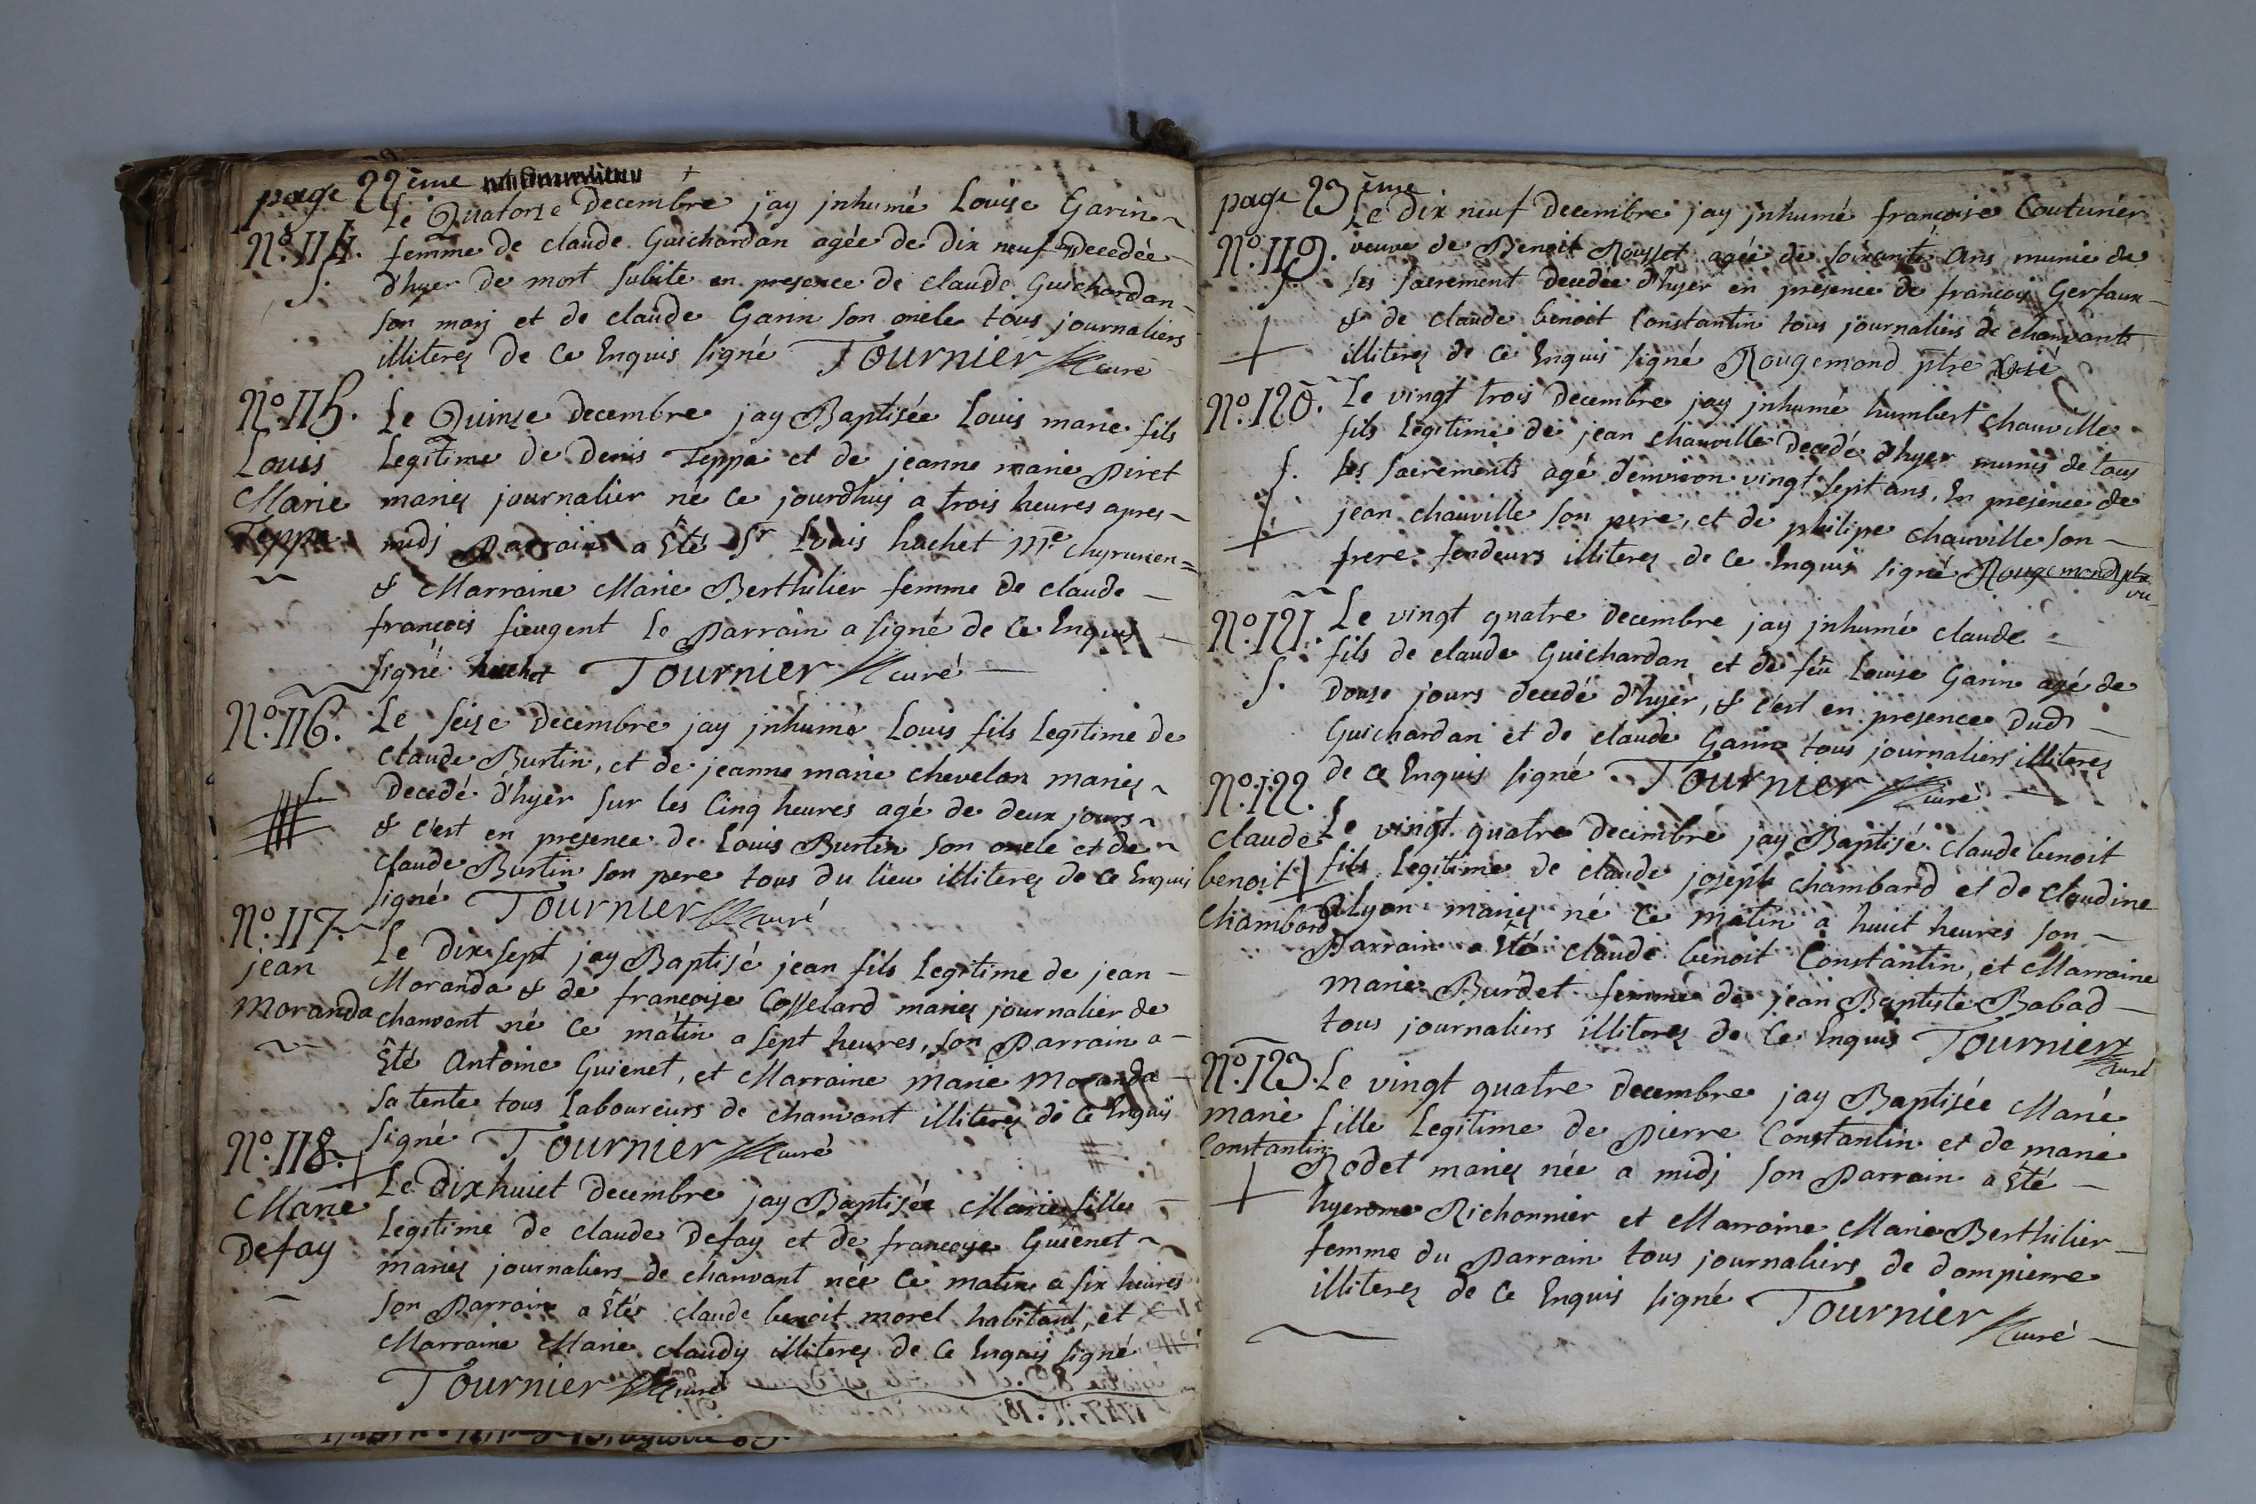 page 22ème
N.º 114.
f.
Le Quatorze Decembre jay jnhumé Louise Garin
femme de claude Guichardan agée de Dix neuf ans Decedée
d'hyer de mort subite en presence de claude Guichardan
son marj et de claude Garin son oncle tous journaliers
illiterez de Ce Enquis signé Tournier curé
N.º 115.
Louis
Marie
Teppa
Le Quinze Decembre jay Baptisée Louis marie fils
Legitime de Denis Teppa et de jeanne marie Piret
mariez journalier né Ce jourdhuj a trois heures apres
midj Parrain a Eté Sr Louis huchet me chyrurien
& Marraine Marie Berthilier femme de claude
françois fieugent le Parrain a signé de Ce Enquis
signé huchet Tournier curé
N.º 116.
f.
Le seize Decembre jay jnhumé Louis fils Legitime de
Claude Burtin, et de jeanne marie chevelon mariez
Decedé d'hyer sur les Cinq heures agé de deux jours
& c'est en presence de Louis Burtin son oncle et de
Claude Burtin son pere tous du lieu illiterez de Ce Enquis
signé Tournier curé
N.º 117.
jean
Moranda
Le Dix sept jay Baptisé jean fils Legitime de jean
Moranda & de françoise Cosselard mariez journalier de
chanvant né Ce matin a sept heures, son Parrain a
Eté Antoine Guienet, et Marraine Marie Moranda
sa tente tous Laboureurs de chanvant illiterez de Ce Enquis
signé Tournier curé
N.º 118.
Marie
Defay
Le Dix huict Decembre jay Baptisée Marie fille
Legitime de claude Defay et de françoye Guienet
mariez journaliers de chanvant née Ce matin a six heures
son Parrain a Eté claude benoit morel habitant, et
Marraine Marie claudy illiterez de Ce Enquis signé
Tournier curé
page 23ème
N.º 119.
f.
Le Dix neuf Decembre jay jnhumé françoise Couturier
veuve de Benoit Rousset agée de soixante Ans munie de
ses sacrement Decedée d'hyer en presence de françoy Gerfaux
& de claude benoit Constantin tous journaliers de chanvant
illiterez de Ce Enquis signé Rougemond ptre
N.º 120.
f.
Le vingt trois Decembre jay jnhumé humbert chauville
fils Legitime de jean chauville Decedé d'hyer munis de tous
les sacrements agé denviron vingt sept ans. En presence de
jean chauville son pere, et de philipe chauville son
frere fendeurs illiterez de Ce Enquis signé Rougemond ptre
N.º 121.
f.
Le vingt quatre Decembre jay jnhumé claude
fils de claude Guichardan et de feu Louise Garin agé de
Douze jours decedé d'hyer, & c'est en presence Dud
Guichardan et de claude Garin tous journaliers illiterez
de Ce Enquis signé Tournier curé
N.º 122.
Claude
benoit
Chambard
Le vingt quatre Decembre jay Baptisé Claude benoit
fils Legitime de claude joseph chambard et de Claudine
Alyon mariez né Ce matin a huict heures son
Parrain a Eté claude benoit Constantin, et Marraine
Marie Burdet femme de jean Baptiste Babad
tous journaliers illiterez de Ce Enquis Tournier curé
N.º 123.
marie
Constantin
Le vingt quatre Decembre jay Baptisée Marie
fille Legitime de Pierre Constantin et de marie
Rodet mariez née a midj son Parrain a Eté
hyerome Richonnier et Marraine Marie Berthilier
femme du Parrain tous journaliers de dompierre
illiterez de Ce Enquis signé Tournier curé